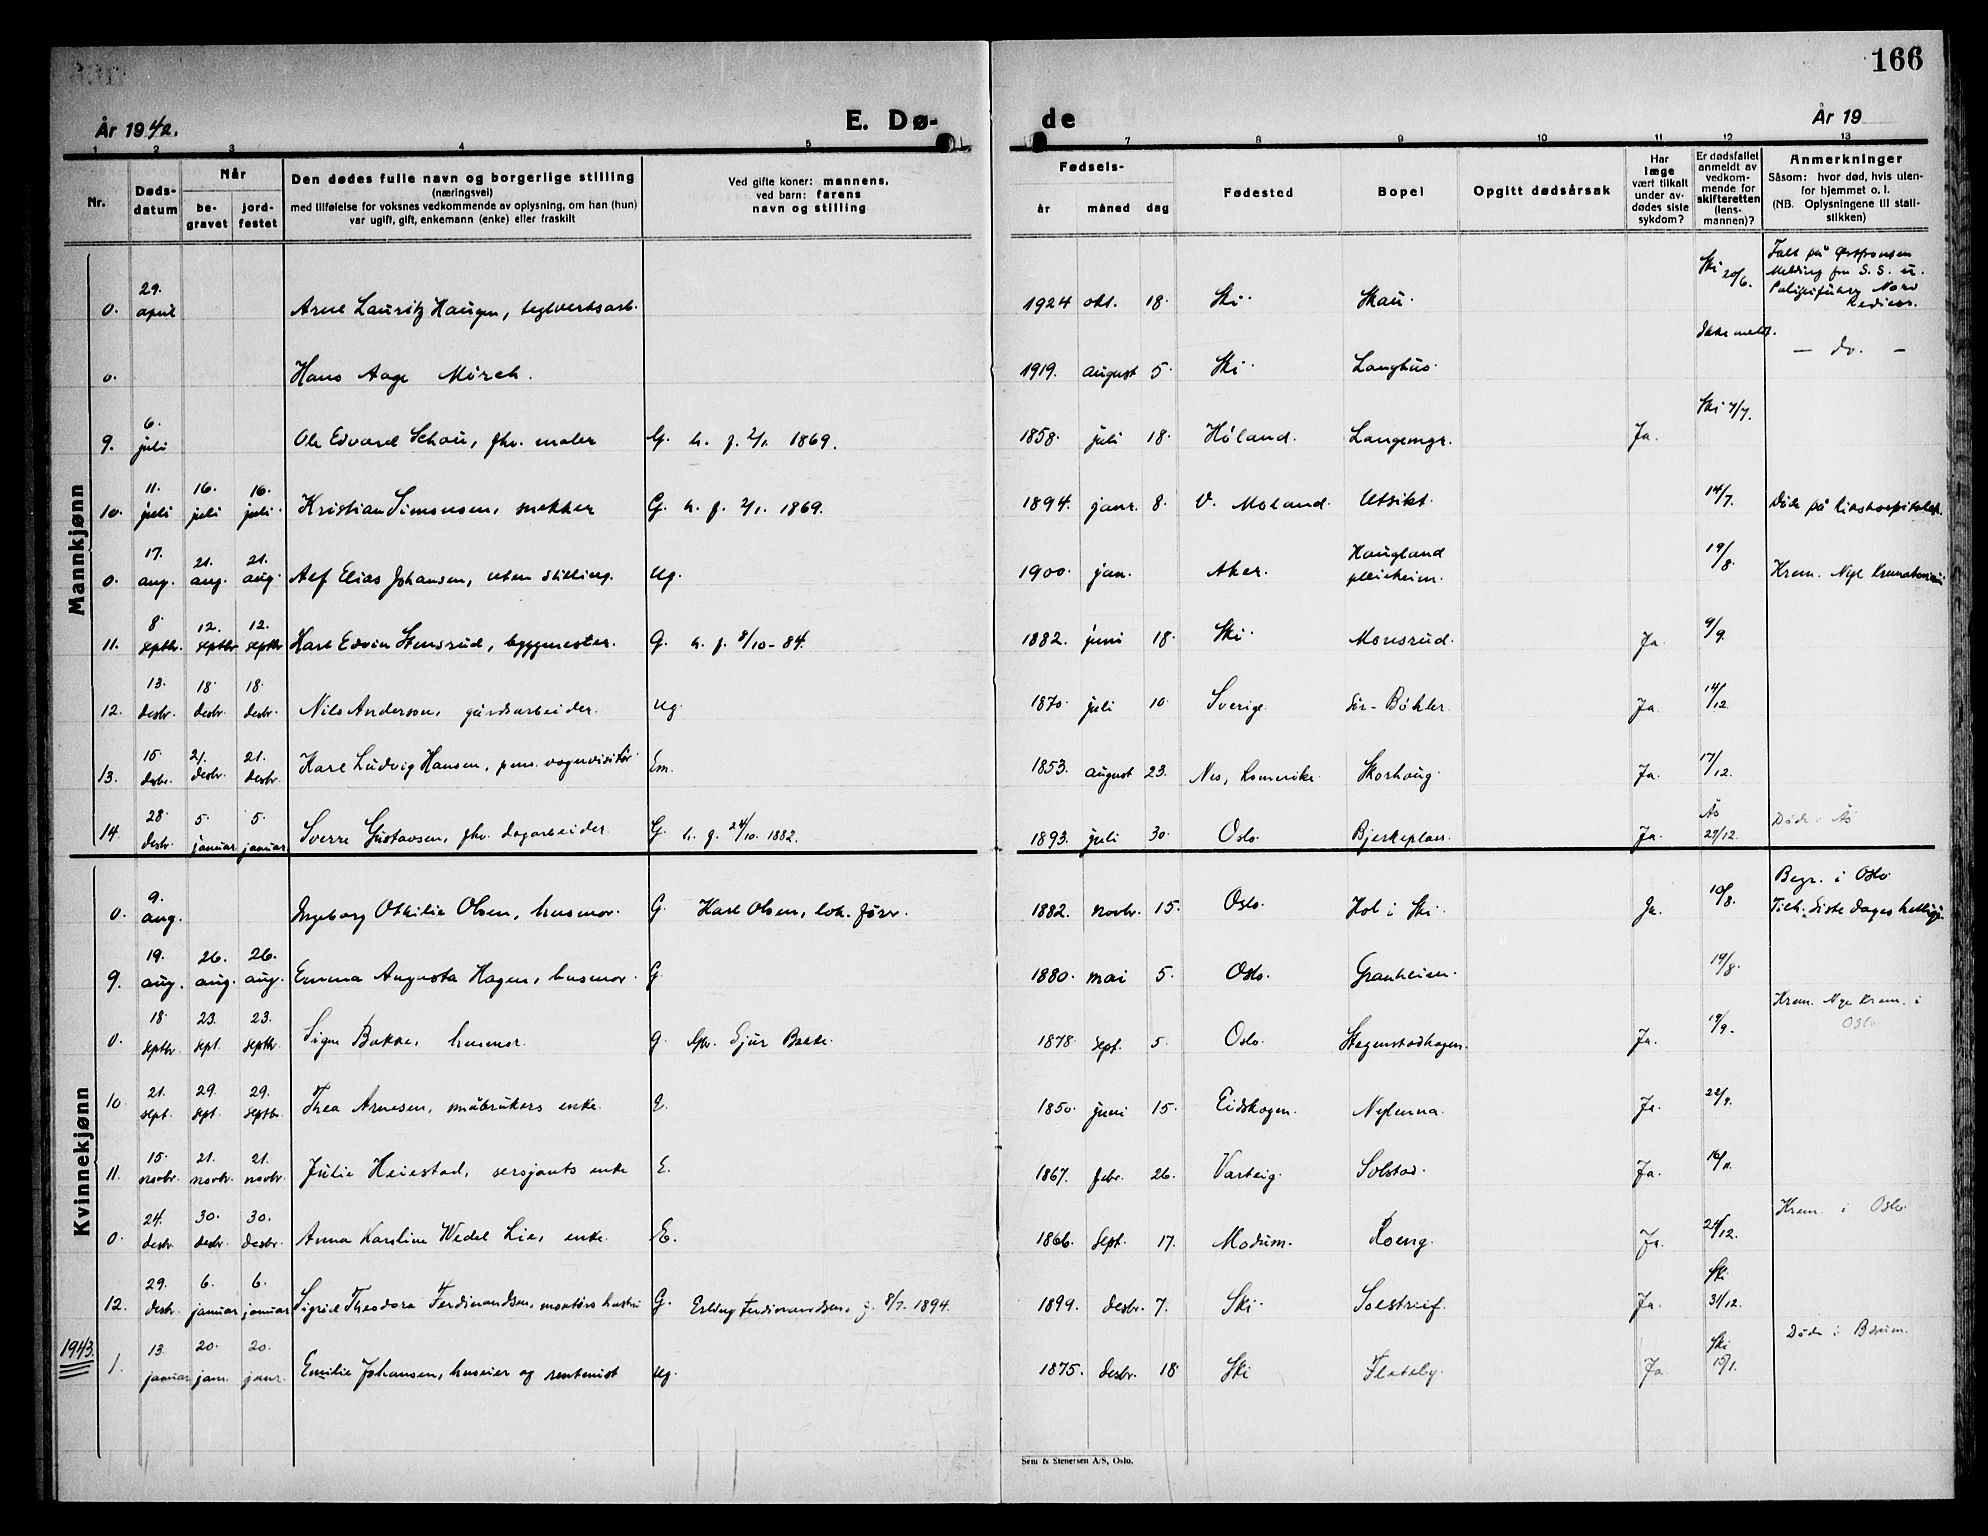 166
År 1942.
E. Dø-
de
År 19
1 2 3 4 5 7 8 9 10 11 12 13
Nr.
Døds-
datum
Når
be-
gravet
jord-
festet
Den dødes fulle navn og borgerlige stilling
(næringsvei)
med tilføielse for voksnes vedkommende av oplysning, om han (hun)
var ugift, gift, enkemann (enke) eller fraskilt
Ved gifte koner: mannens,
ved barn: farens
navn og stilling
Fødsels-
år måned dag
Fødested
Bopel
Opgitt dødsårsak
Har
læge
vært tilkalt
under av-
dødes siste
sykdom?
Er dødsfallet
anmeldt av
vedkom-
mende for
skifteretten
(lens-
mannen)?
Anmerkninger
Såsom: hvor død, hvis uten-
for hjemmet o. l.
(NB. Oplysningene til stati-
stikken)
Mannkjønn
0. 29. april Arne Lauritz Haugen, teglverksarb. 1924 okt. 18. Ski. Skau. Ski 20/6. Falt på Østfronten
Melding fra S.S. u.
Polizeiführer Nord
0. Hans Aage Mörch. 1919. august 5. Ski. Langhus. Ikke meldt. - do. -
9. 6. juli Ole Edvard Schau, fhv. maler G. h. f. 2/1. 1869. 1858. juli 18. Høland. Langemyr. Ja. Ski 7/7.
10. 11. juli 16. juli 16. juli. Kristian Simonsen, snekker G. h. f. 2/1. 1869. 1894. janr. 8. V. Moland. Utsikt. 14/7. Døde på Rikshospitalet.
0. 17. aug. 21. aug. 21. aug. Alf Elias Johansen, uten stilling. ug. 1900. jan. Aker. Haugland
pleieheim. 19/8. Krem. Nye Krematorium
11. 8 septbr. 12. septbr 12. septbr Karl Edvin Stensrud, byggmester. G. h. f. 8/10-84. 1882. juni 18. Ski. Monsrud. Ja. 9/9.
12. 13. desbr. 18. desbr. 18. desbr. Nils Anderson, gårdsarbeider. ug. 1870. juli 10. Sverige. Sør-Bøhler. Ja. 14/12.
13. 15. desbr. 21. desbr. 21. desbr. Karl Ludvig Hansen, pens. vognvisitør Em. 1853. august 23. Nes, Romerike. Skorhaug. Ja. 17/12.
14. 28. desbr. 5. januar 5. januar Sverre Gustavsen, fhv. dagarbeider G. h. f. 24/10. 1882. 1893. juli 30. Oslo. Bjerkeplass. Ja. Ås 29/12. Døde i Ås
Kvinnekjønn
0. 9. aug. Ingeborg Othilie Olsen, husmor. G. Karl Olsen, lok. fører. 1882. novbr. 15. Oslo. Hol i Ski. Ja. 10/8. Begr. i Oslo
Tilh. Siste dages hellige.
9. 19. aug. 26. aug. 26. aug. Emma Augusta Hagen, husmor. G. 1880. mai 5. Oslo. Granheim. 19/8.
0. 18 septbr. 23. sept. 23. septbr. Signe Bakke, husmor. G. Sjur Bakke. 1878. sept. 5. Oslo. Stegenstadhagen. Ja. 19/9. Krem. Nye Krem. i
Oslo.
10. 21. sept. 29. sept. 29. septbr. Thea Arnesen, småbrukers enke. E. 1850. juni 15. Eidskogen. Nylenna. Ja. 22/9.
11. 15. novbr. 21. novbr. 21. novbr. Julie Heiestad, sersjants enke E. 1867. febr. 26. Varteig. Solstad. Ja. 16/11.
0. 24. desbr. 30. desbr. 30. desbr. Anna Karoline Wedel Lie, enke. E. 1866. sept. 17. Modum. Roeng. Ja. 24/12. Krem. i Oslo.
12. 29. desbr. 6. januar 6. januar Sigrid Theodora Ferdinandsen, montørs hustru G. Erling Ferdinandsen, f. 8/7. 1894. 1899. desbr. 7. Ski. Solstreif. Ja. Ski 31/12.
1943. 1. 13. januar 20. jan. 20. janr. Emilie Johansen, huseier og rentenist ug. 1875. desbr. 18 Ski Flateby. Ja. Ski 15/1. Døde i Bærum.
Sem & Stenersen A/S, Oslo.